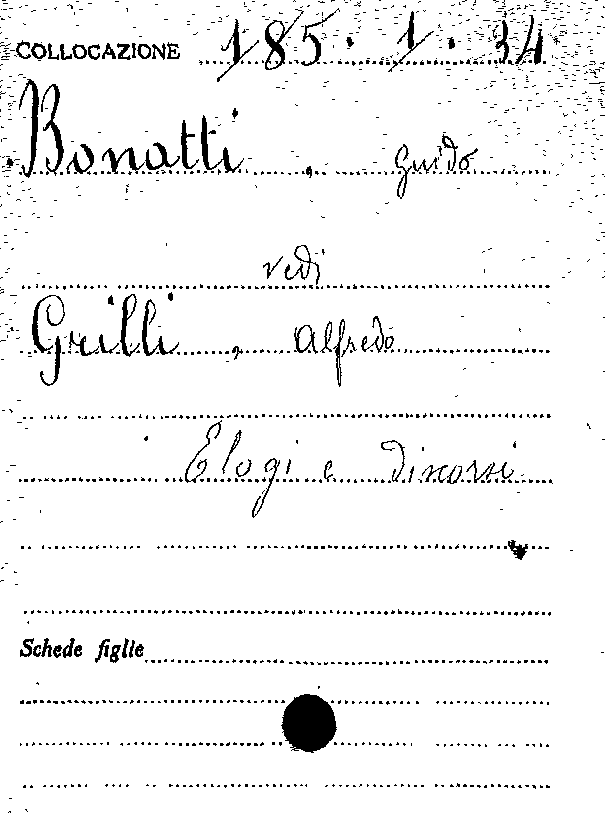 COLLOCAZIONE 185. 1. 34
Bonatti, Guido
vedi
Grilli, Alfredo
Elogi e discorsi
Schede figlie